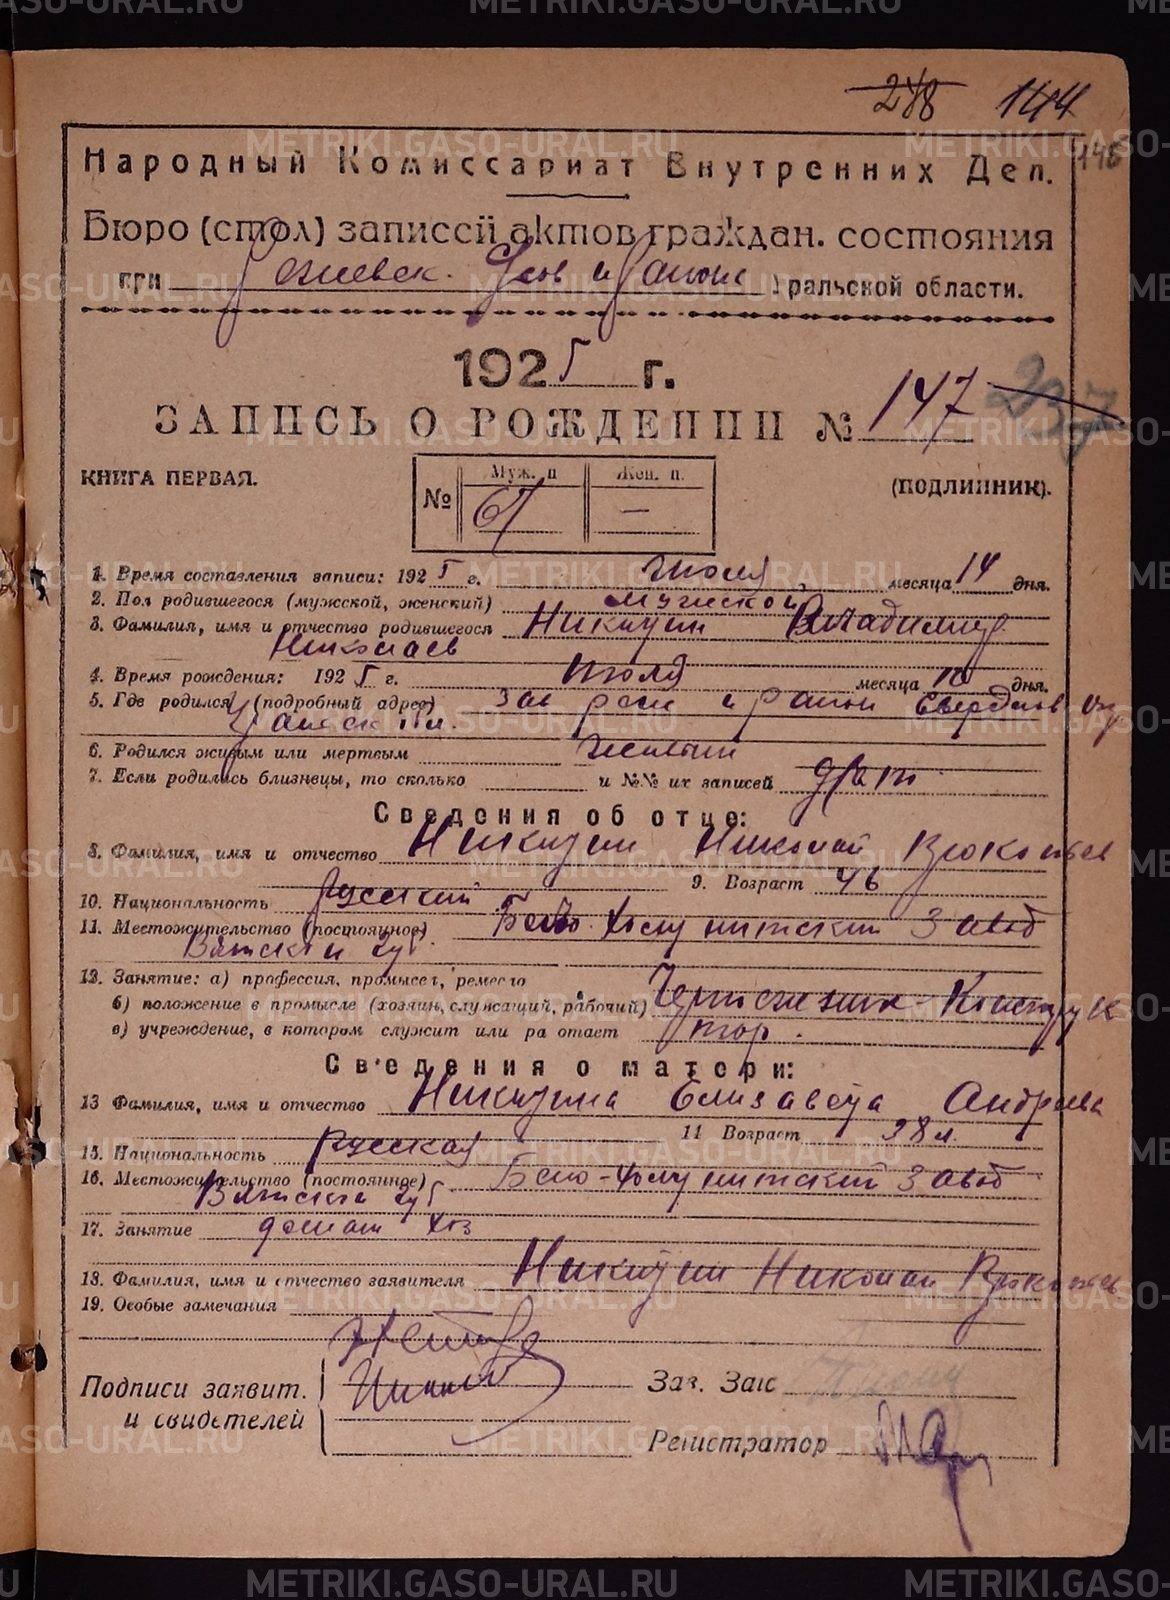 METRIKI.GASO-URAL.RU
248 144
Народный Комиссариат Внутренних Дел. 146
Бюро (стол) записей актов граждан. состояния
при Режевск. Уральской области.
1925 г.
ЗАПИСЬ О РОЖДЕНИИ № 147 237
КНИГА ПЕРВАЯ. (ПОДЛИННИК).
№ Муж. п 67 Жен. п. —
1. Время составления записи: 1925 г. Июля месяца 14 дня.
2. Пол родившегося (мужской, женский) мужской
3. Фамилия, имя и отчество родившегося Никулин Владимир
Николаев
4. Время рождения: 1925 г. Июля месяца 10 дня.
5. Где родился (подробный адрес) Зав реж и район Свердлов Окр
6. Родился живым или мертвым Живым
7. Если родились близнецы, то сколько и №№ их записей
Сведения об отце:
8. Фамилия, имя и отчество Никулин Николай Прокопьев
9. Возраст 46
10. Национальность Русский
11. Местожительство (постоянное) Бело-Холуницкий Завод
Вятской губ.
12. Занятие: а) профессия, промысел, ремесло
б) положение в промысле (хозяин, служащий, рабочий) Чертежник-Конструк
в) учреждение, в котором служит или работает тор.
Сведения о матери:
13 Фамилия, имя и отчество Никулина Елизавета Андреева
14 Возраст 38 л.
15. Национальность Русская
16. Местожительство (постоянное) Бело-Холуницкий Завод
Вятской губ
17. Занятие домаш хоз
18. Фамилия, имя и отчество заявителя Никулин Николай Прокопьев
19. Особые замечания
Подписи заявит.
и свидетелей
Зав. Загс
Регистратор